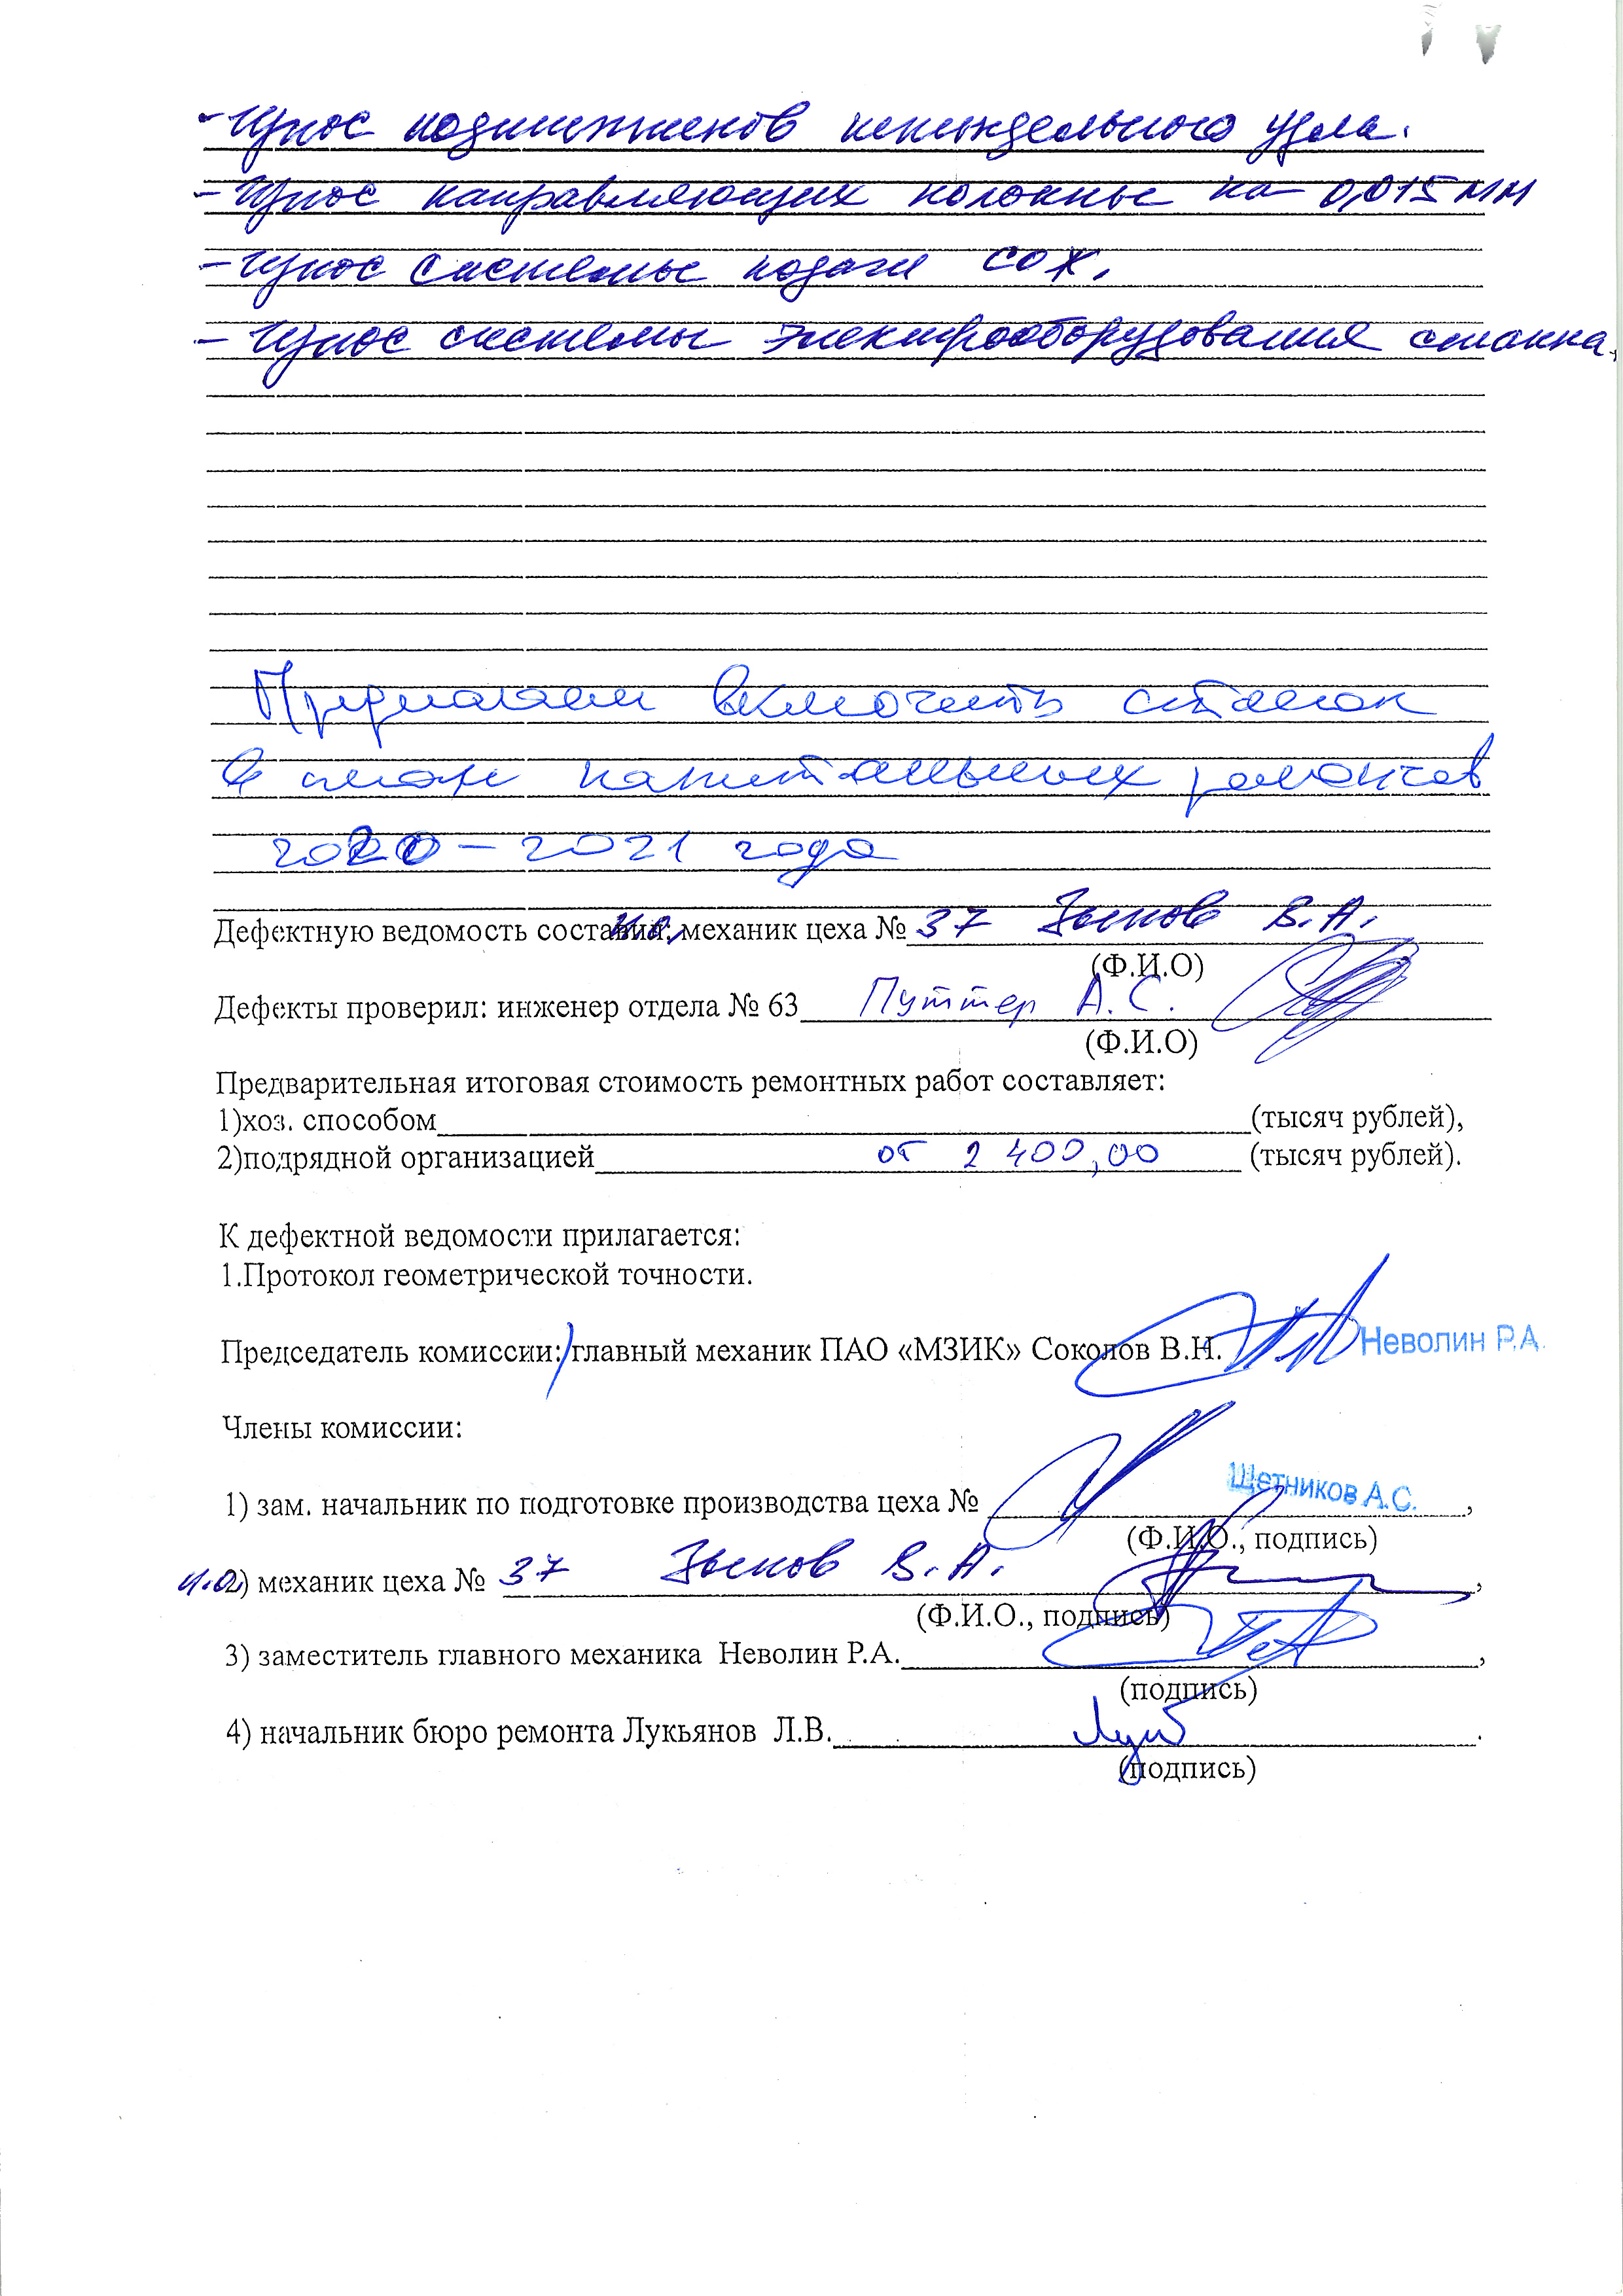 - Износ подшипников шпиндельного узла.
- Износ направляющих колонны на 0,015 мм
- Износ системы подачи СОЖ.
- Износ системы электрооборудования станка.
Предлагаем включить станок
в план капитальных ремонтов
2020 – 2021 года
Дефектную ведомость составил: и.о. механик цеха № 37 Зыков В.А.
(Ф.И.О)
Дефекты проверил: инженер отдела № 63 Путтер А.С.
(Ф.И.О)
Предварительная итоговая стоимость ремонтных работ составляет:
1)хоз. способом (тысяч рублей),
2)подрядной организацией от 2 400,00 (тысяч рублей).
К дефектной ведомости прилагается:
1.Протокол геометрической точности.
Председатель комиссии: главный механик ПАО «МЗИК» Соколов В.Н. Неволин Р.А.
Члены комиссии:
1) зам. начальник по подготовке производства цеха № Щетников А.С. ,
(Ф.И.О., подпись)
и.о. 2) механик цеха № 37 Зыков В.А. ,
(Ф.И.О., подпись)
3) заместитель главного механика Неволин Р.А. ,
(подпись)
4) начальник бюро ремонта Лукьянов Л.В. .
(подпись)